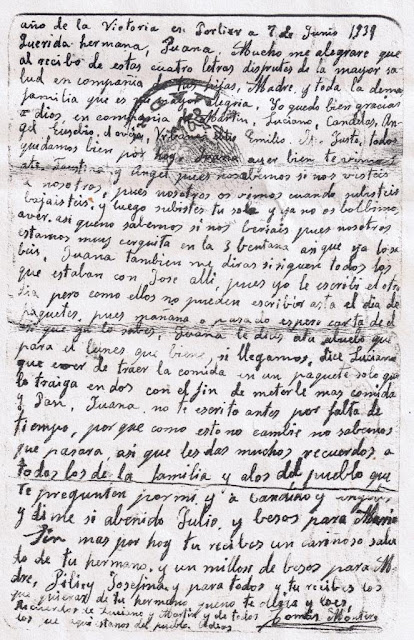 año de la Victoria en Porlier a 7 de Junio 1939
Querida hermana, Juana, Mucho me alegrare que
al recibo de estas cuatro letras disfrutes de la mayor sa
lud en compañia de tus hijas, Madre, y toda la demas
familia que es mi mayor alegria. Yo quedo bien gracias
a dios, en compañia de Martin, Luciano, Candelas, An
gel Eusebio, Viviano Emilio. Justo, todos
quedamos bien por hoy. Juana ayer bien te vimos
a ti Faustina y Angel pues no sabemos si nos visteis
a nosotros, pues nosotros os vimos cuando subisteis
bajasteis, y luego subistes tu sola y ya no os bolbimos
aver. asi queno sabemos si nos beriais pues nosotros
estamos muy cerquita en la 3 bentana asi que ya lo sa
beis. Juana tambien me diras si siguen todos los
que estaban con Jose alli, pues yo le escribi el otro
dia pero como ellos no pueden escribir asta el dia de
paquetes, pues mañana o pasado espero carta de el
asi que ya lo sabes. Juana le dias al abuelo que
para el lunes que biene, si llegamos, dice Luciano
que en vez de traer la comida en un paquete solo que
lo traiga en dos con el fin de meterle mas comida
y Pan. Juana no te escrito antes por falta de
tiempo, porque como esto no cambie no sabemos
que pasara, asi que les das muchos recuerdos a
todos los de la familia y alos del pueblo que
te pregunten por mi y a Candido y
y dime si abenido Julio, y besos para Maria
Sin mas por hoy tu recibes un cariñoso salu
do de tu hermano, y un millon de besos para Ma
dre, Pili y Josefina y para todos y tu recibes los
que quieras de tu hermano queno te olbia y loes
Recuerdos de Luciano y Martin y de todos Tomas Montero
los que aqui estanos del pueblo Adios